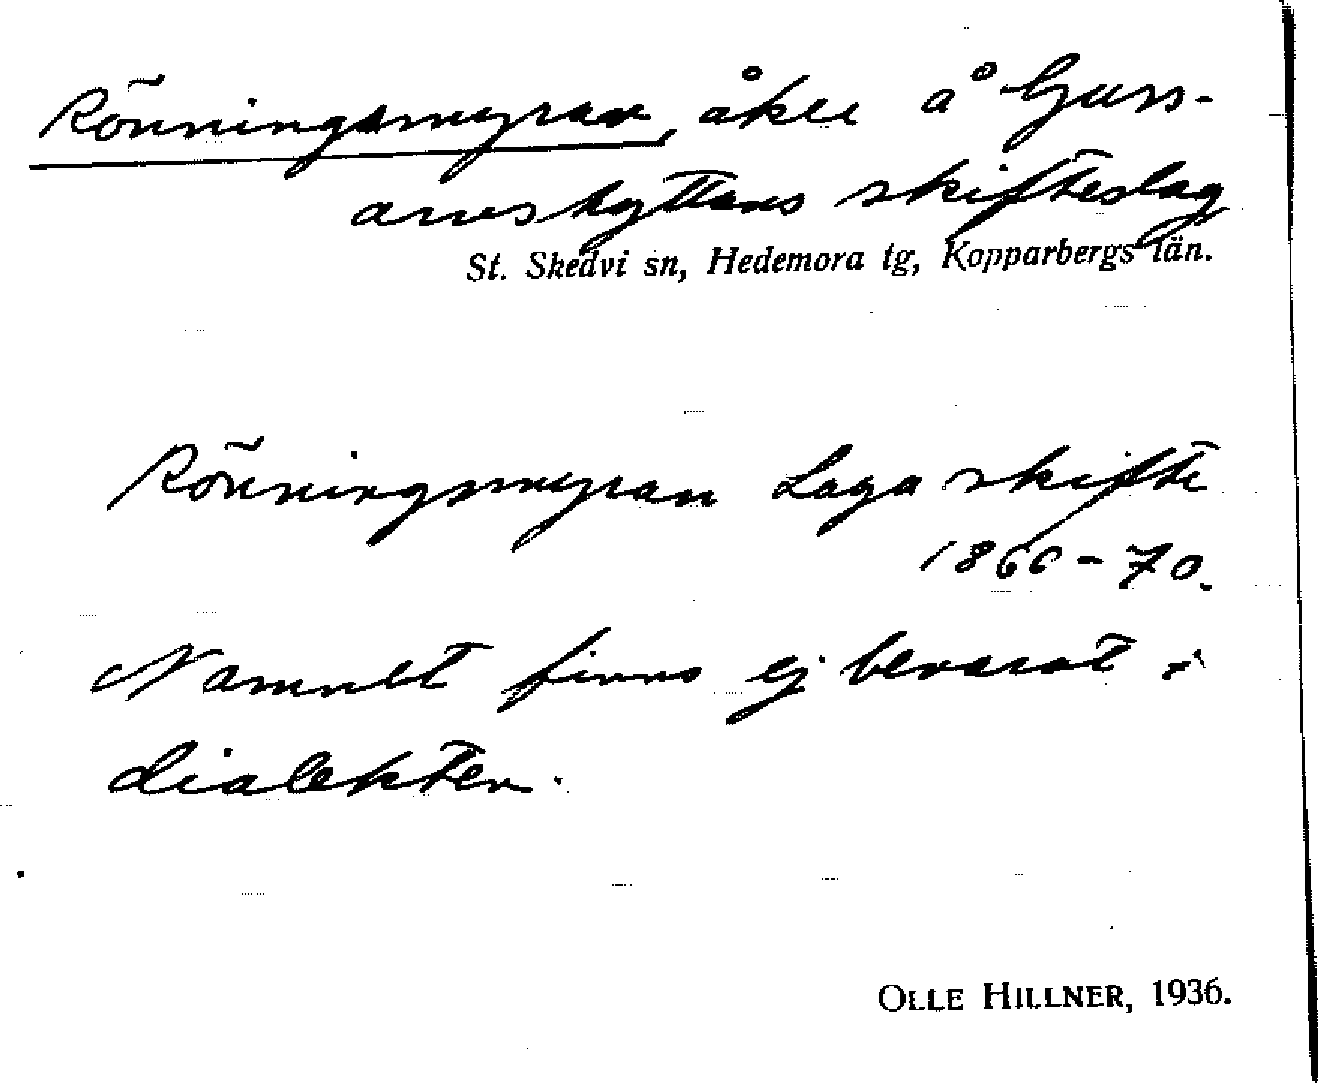 Rönningsmyran, åker å Guss-
arvshyttans skifteslag
St. Skedvi sn, Hedemora tg, Kopparbergs län.
Rönningsmyran Laga skifte
1866-70.
Namnet finns ej bevarat i
dialekten.
OLLE HILLNER, 1936.